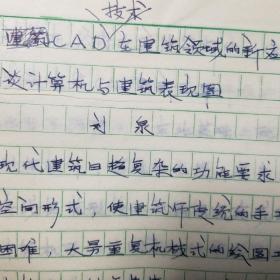 技术
CAD在建筑领域的新应
谈计算机与建筑表现图
刘泉
现代建筑日趋复杂的功能要求
空间形式，使建筑师传统的手
困难，大量重复机械式的绘图